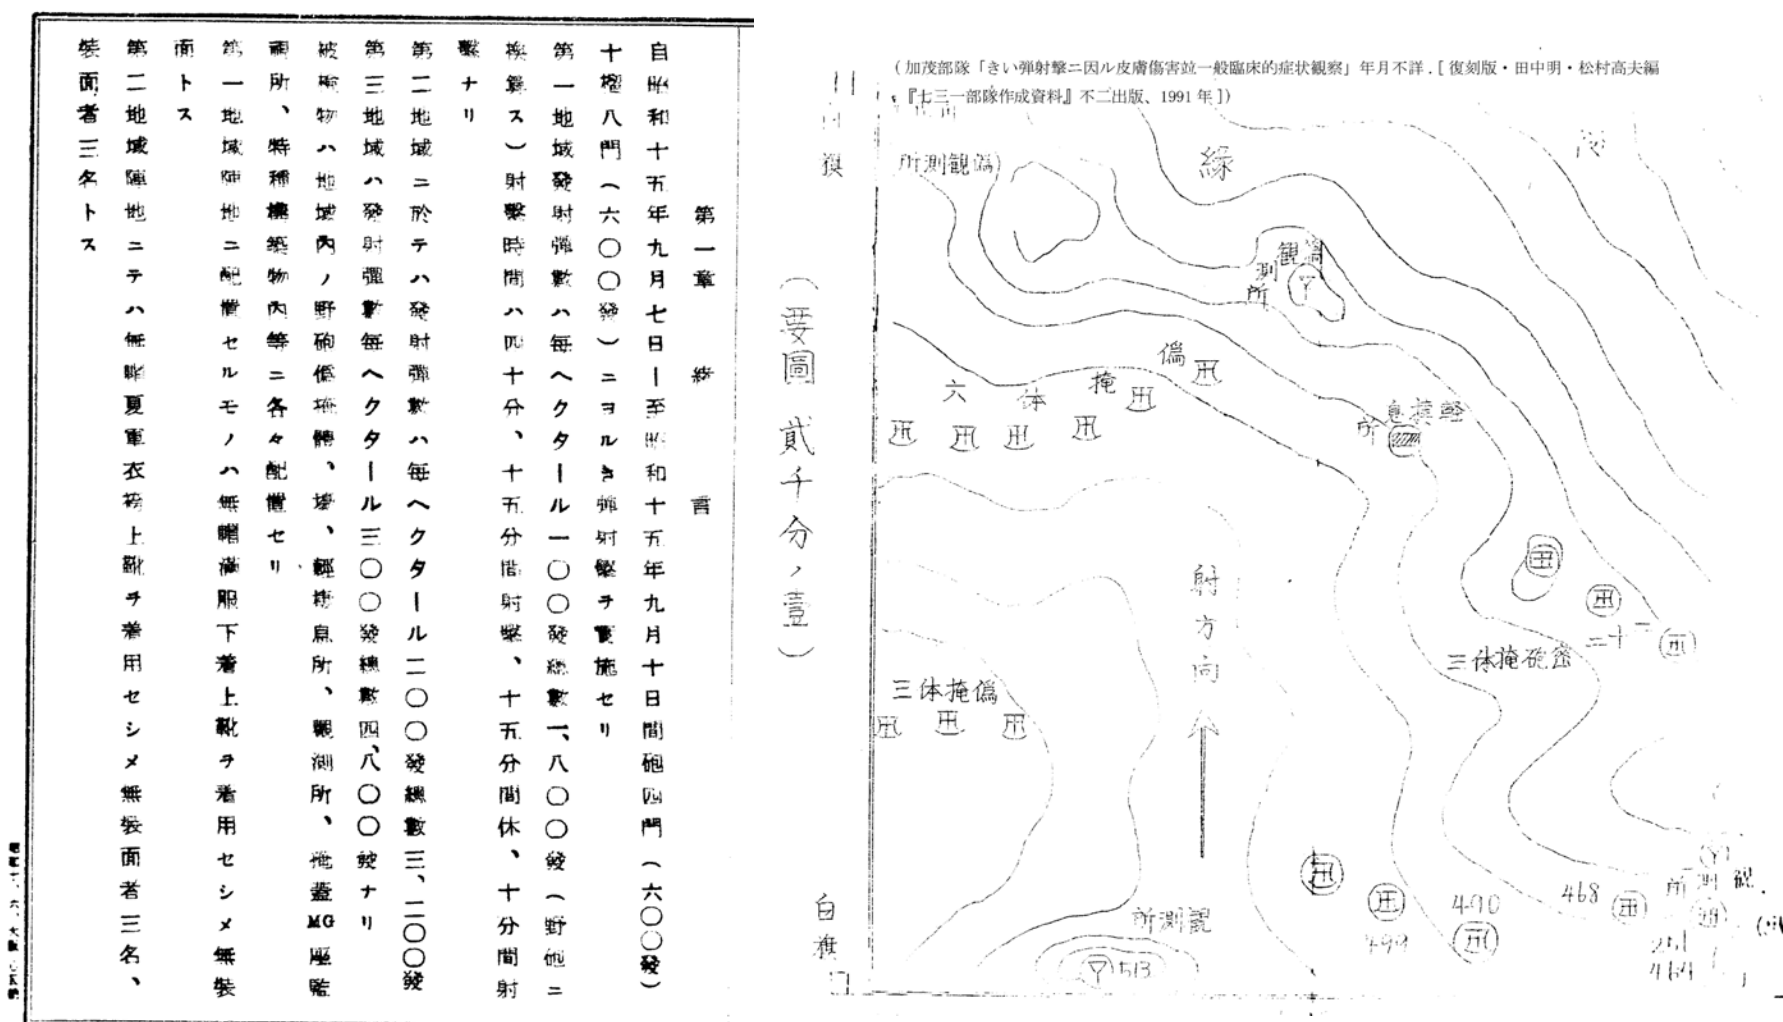 第一章 緒言
自昭和十五年九月七日ー至昭和十五年九月十日間砲四門(六〇〇發)
十榴八門(六〇〇發)ニヨルき彈射擊ヲ實施セリ
第一地域發射彈數ハ每ヘクタール一〇〇發總數一、八〇〇發(野砲ニ
換算ス)射擊時間ハ四十分、十五分間射擊、十五分間休、十分間射
擊ナリ
第二地域ニ於テハ發射彈數ハ每ヘクタール二〇〇發總數三、二〇〇發
第三地域ハ發射彈數每ヘクタール三〇〇發總數四、八〇〇發ナリ
被檢物ハ地域內ノ野砲偽掩體、壕、輕掩息所、觀測所、掩蓋MG座監
所、特種構築物內等ニ各々配置セリ
第一地域陣地ニ配置セルモノハ無帽滿服下着上靴ヲ着用セシメ無裝
面トス
第二地域陣地ニテハ無帽夏軍衣袴上靴ヲ着用セシメ無裝面者三名、
裝面者三名トス
(加茂部隊「きい弾射撃ニ因ル皮膚傷害並一般臨床的症状観察」年月不詳.[復刻版・田中明・松村高夫編
『七三一部隊作成資料』不二出版、1991年])
(要圖 貳千分ノ壹)
白旗
所測観偽)
緑
観測所
偽掩体六
軽掩息所
射方向
三体掩偽
三体掩砲
二十二
所測観
513
499
490
468
観測所
251
464